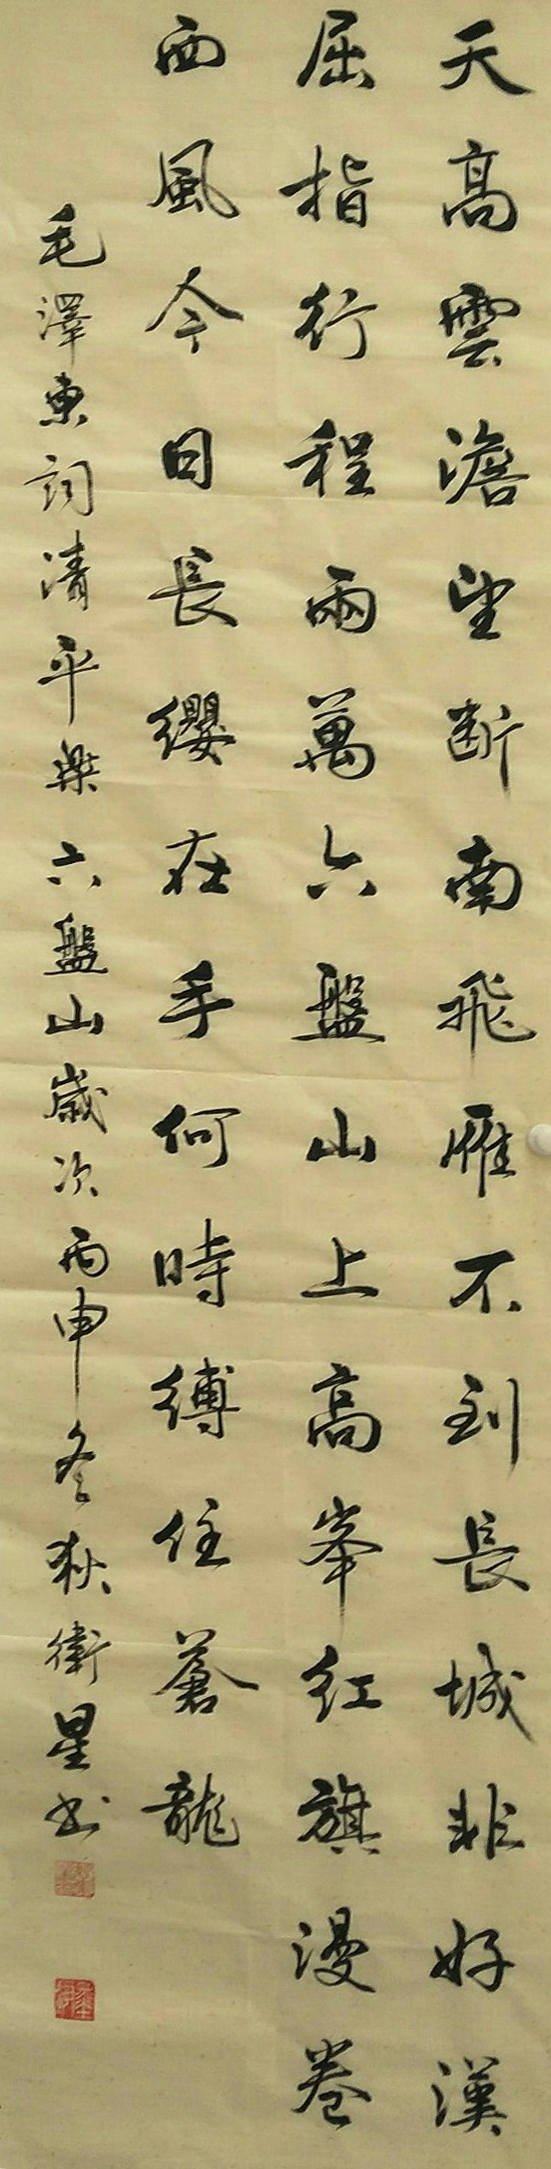 天高雲澹望断南飛雁不到長城非好漢
屈指行程兩萬六盤山上高峯红旗漫卷
西風今日長纓在手何時縛住蒼龍
毛澤東詞清平樂六盤山歲次丙申冬狄衛星书